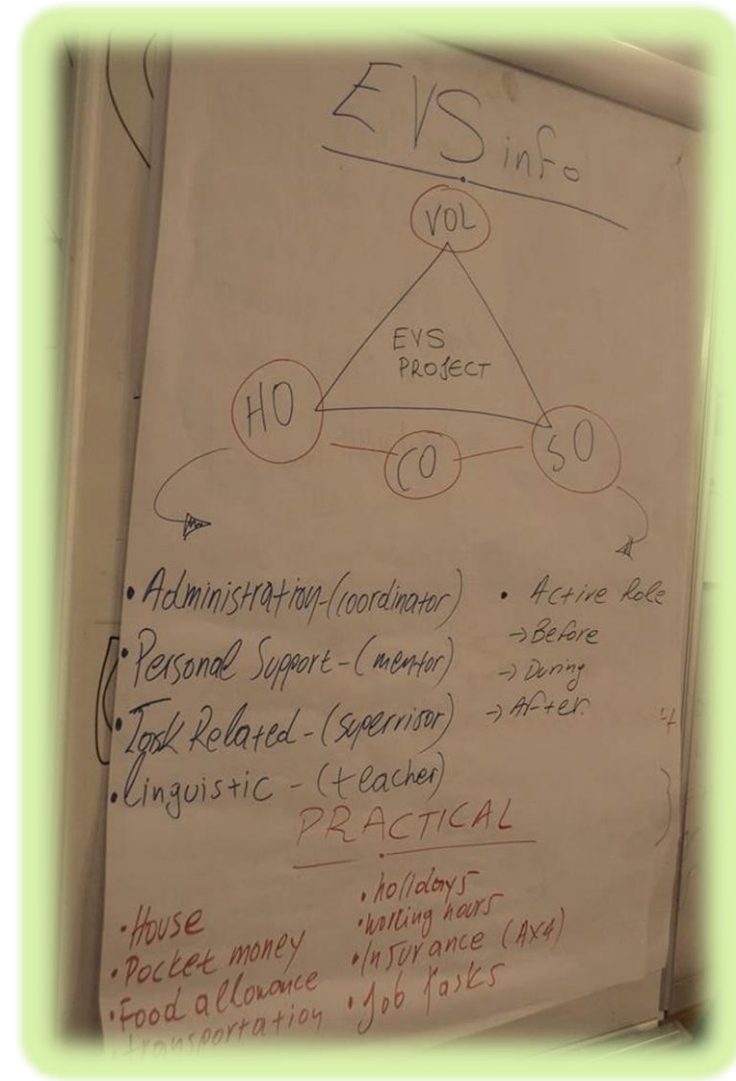 EVS info
VOL
EVS
PROJECT
HO
CO
SO
• Administration-(coordinator)
• Personal Support-(mentor)
• Task Related-(supervisor)
• Linguistic - (teacher)
• Active Role
→ Before
→ During
→ After
PRACTICAL
• House
• Pocket money
• Food allowance
• transportation
• holidays
• working hours
• Insurance (AXA)
• Job Tasks